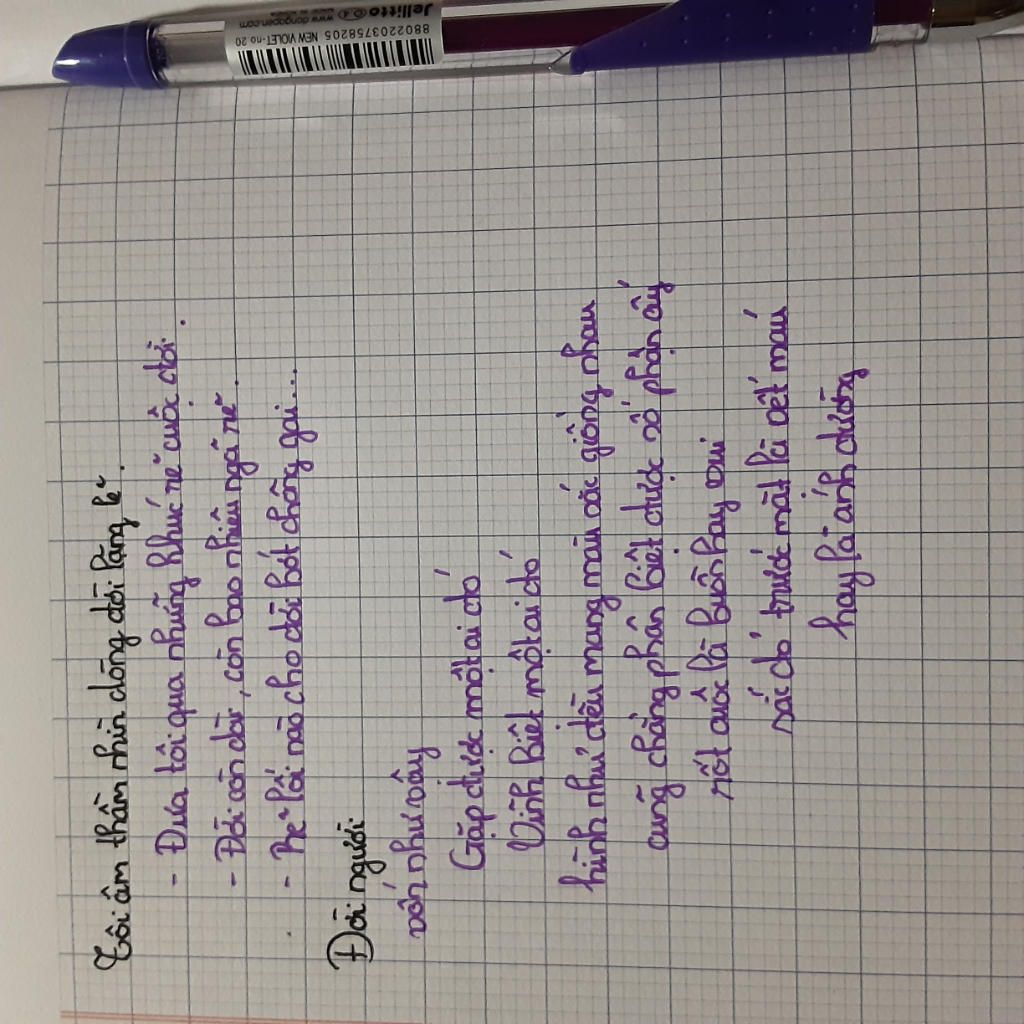 Jellitto 0.4
www.dongapen.com
MADE IN KOREA
8802203758205 NEW VIOLET-no.20
Tôi âm thầm nhìn dòng đời lặng lẽ.
- Đưa tôi qua những khúc rẽ cuộc đời.
- Đời còn dài, còn bao nhiêu ngã rẽ.
- Rẽ lối nào cho đời bớt chông gai...
Đời người
vốn như vậy
Gặp được một ai đó
Vĩnh biệt một ai đó
hình như đều mang màu sắc giống nhau
cũng chẳng phân biệt được số phận ấy
rốt cuộc là buồn hay vui
sắc đỏ trước mắt là vết máu
hay là ánh dương